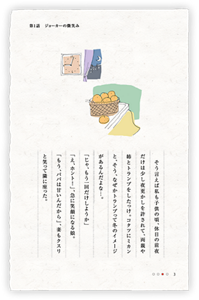 第1話 ジョーカーの微笑み
そう言えば私も子供の頃、休日の前夜
だけは少し夜更かしを許されて、両親や
姉とトランプをしたっけ。コタツにミカン
と、そう、なぜかトランプって冬のイメージ
があるんだよな…。
「じゃ、もう一回だけしようか」
「え、ホントー！」、急に笑顔になる娘。
「もう、パパは甘いんだから」、妻もクスリ
と笑って後に座った。
1